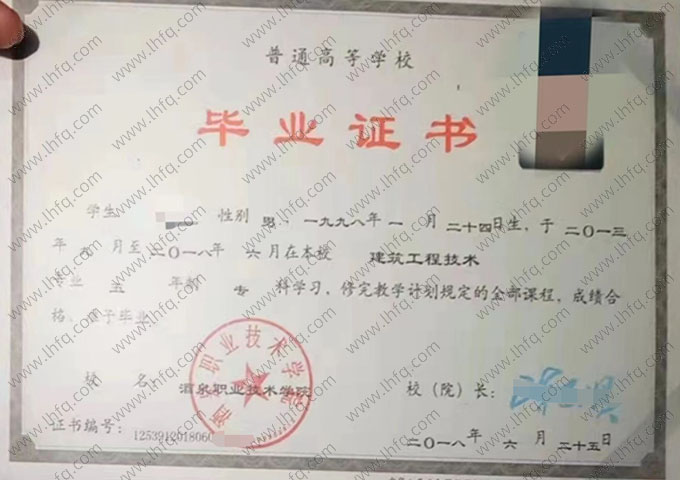 普通高等学校
毕业证书
学生 性别 男，一九九八年 一 月 二十四日生，于 二〇一三
年 九 月至 二〇一八年 六 月在本校 建筑工程技术
专业 五 年制 专 科学习，修完教学计划规定的全部课程，成绩合
格，准予毕业。
酒泉职业技术学院
校 名： 酒泉职业技术学院 校（院）长：
证书编号： 1253912018060
二〇一八年 六 月 二十五日
www.lhfq.com